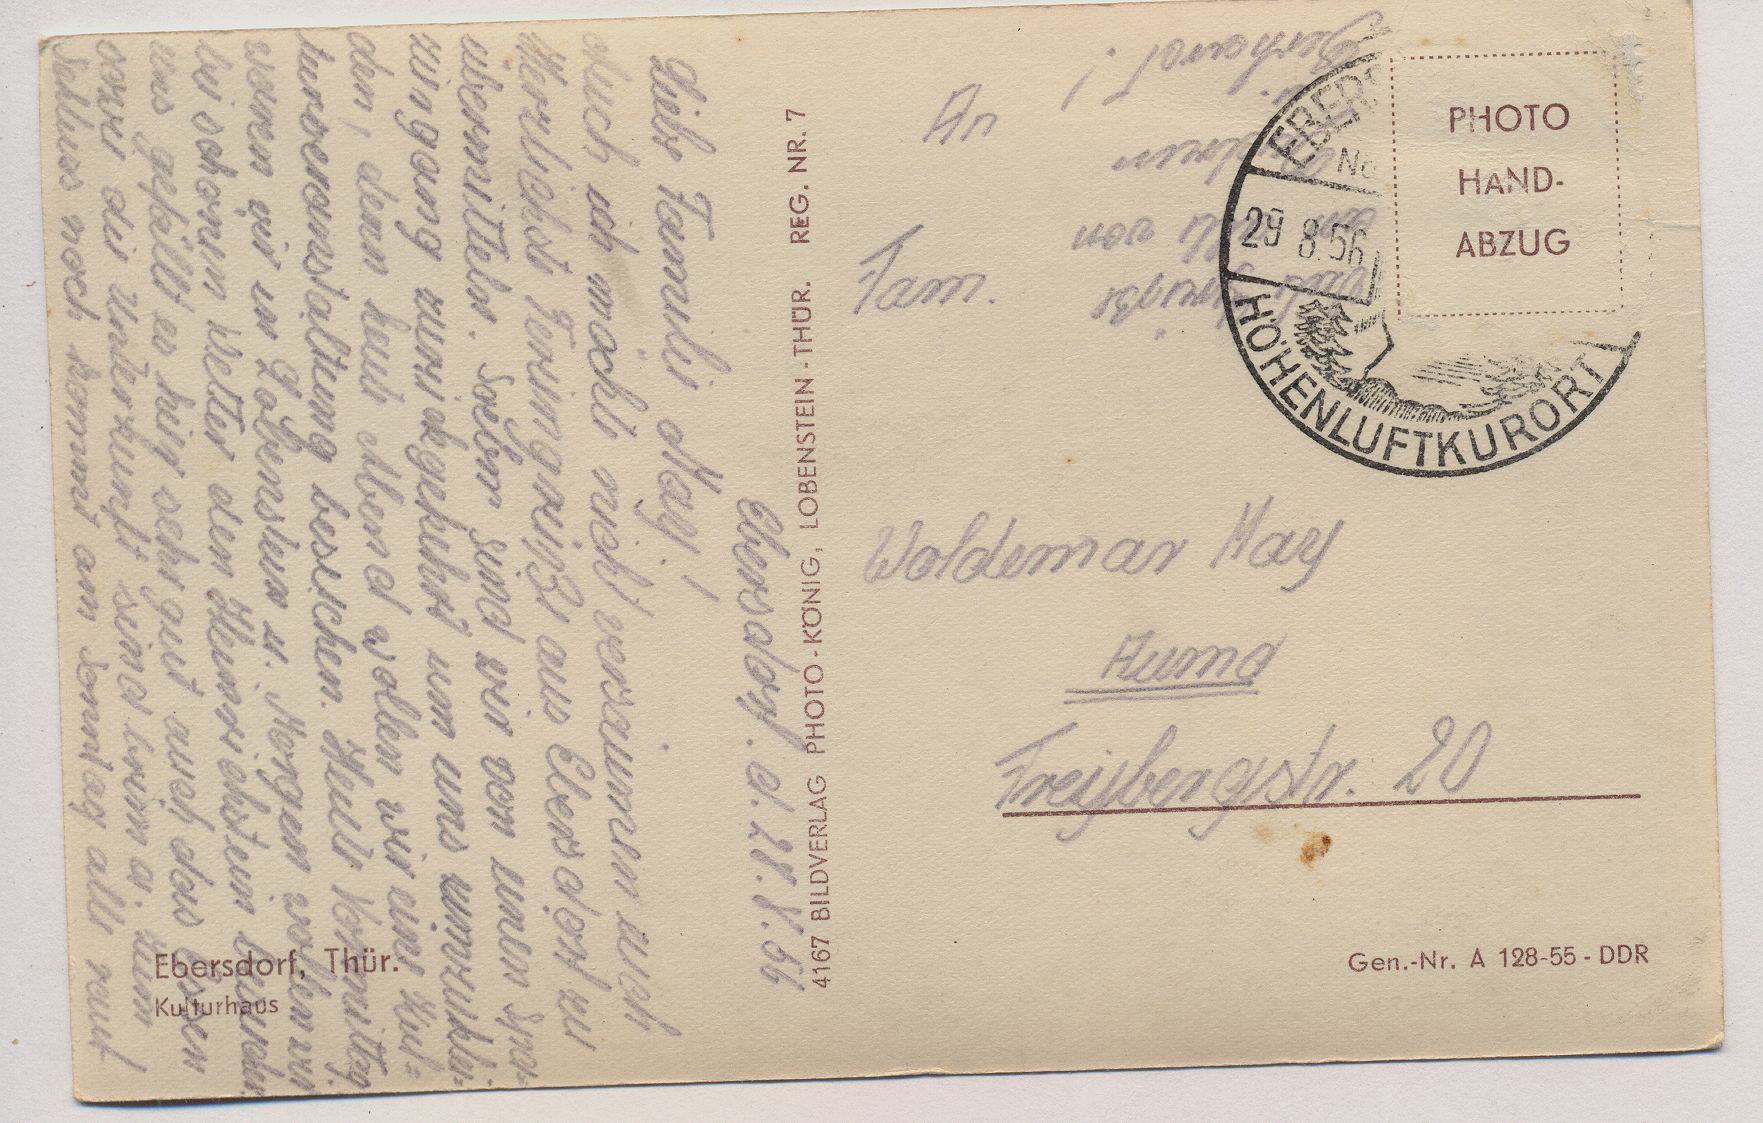 Ebersdorf. d. 28.8.56
Liebe Familie May!
Auch ich möchte nicht versäumen euch
Herzlichste Feriengrüße aus Ebersdorf zu
übermitteln. Soeben sind wir von unsern
zurückgekehrt um uns umzuklei-
den, denn heut Abend wollen wir eine Kul-
turveranstaltung besuchen. Heute Vormittag
waren wir in Lobenstein u. Morgen wollen wir
bei schönem Wetter den Heinrichstein
uns gefällt es hier sehr gut auch das Essen
sowie die Unterkunft sind prima. Zum
Schluss noch kommt am Sonntag alle
4167 BILDVERLAG PHOTO-KÖNIG, LOBENSTEIN-THÜR. REG. NR. 7
Ebersdorf, Thür.
Kulturhaus
An
Fam.
Woldemar May
Auma
Freybergstr. 20
von
Gerhard!
PHOTO
HAND-
ABZUG
EBERS
29 8.56
HÖHENLUFTKURORT
Gen.-Nr. A 128-55-DDR